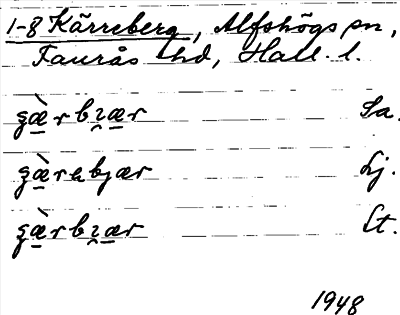 1-8 Kärreberg, Alfshögs sn,
Faurås hd, Hall. l.
gæ̀rbɿær Sa.
gæ̀rabjær Lj.
gæ̀rbɿær Lt.
1948